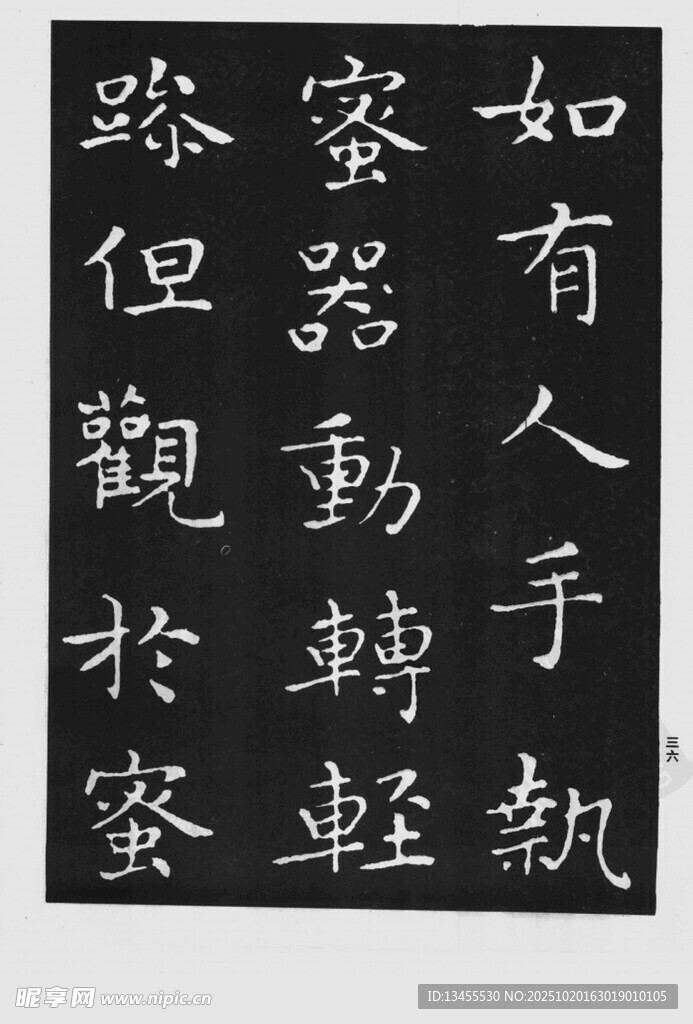 如有人手執
蜜器動轉輕
躁但觀於蜜
三六
昵享网 www.nipic.cn
ID:13455530 NO:20251020163019010105